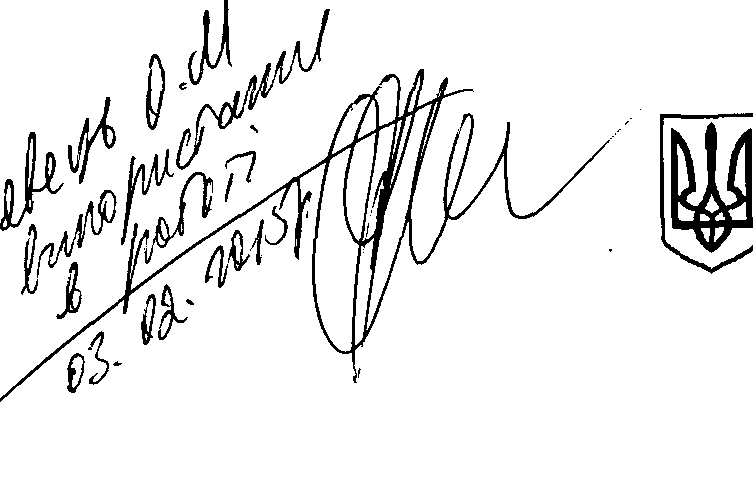 О.М
використати
в роботі
03.02.2015р